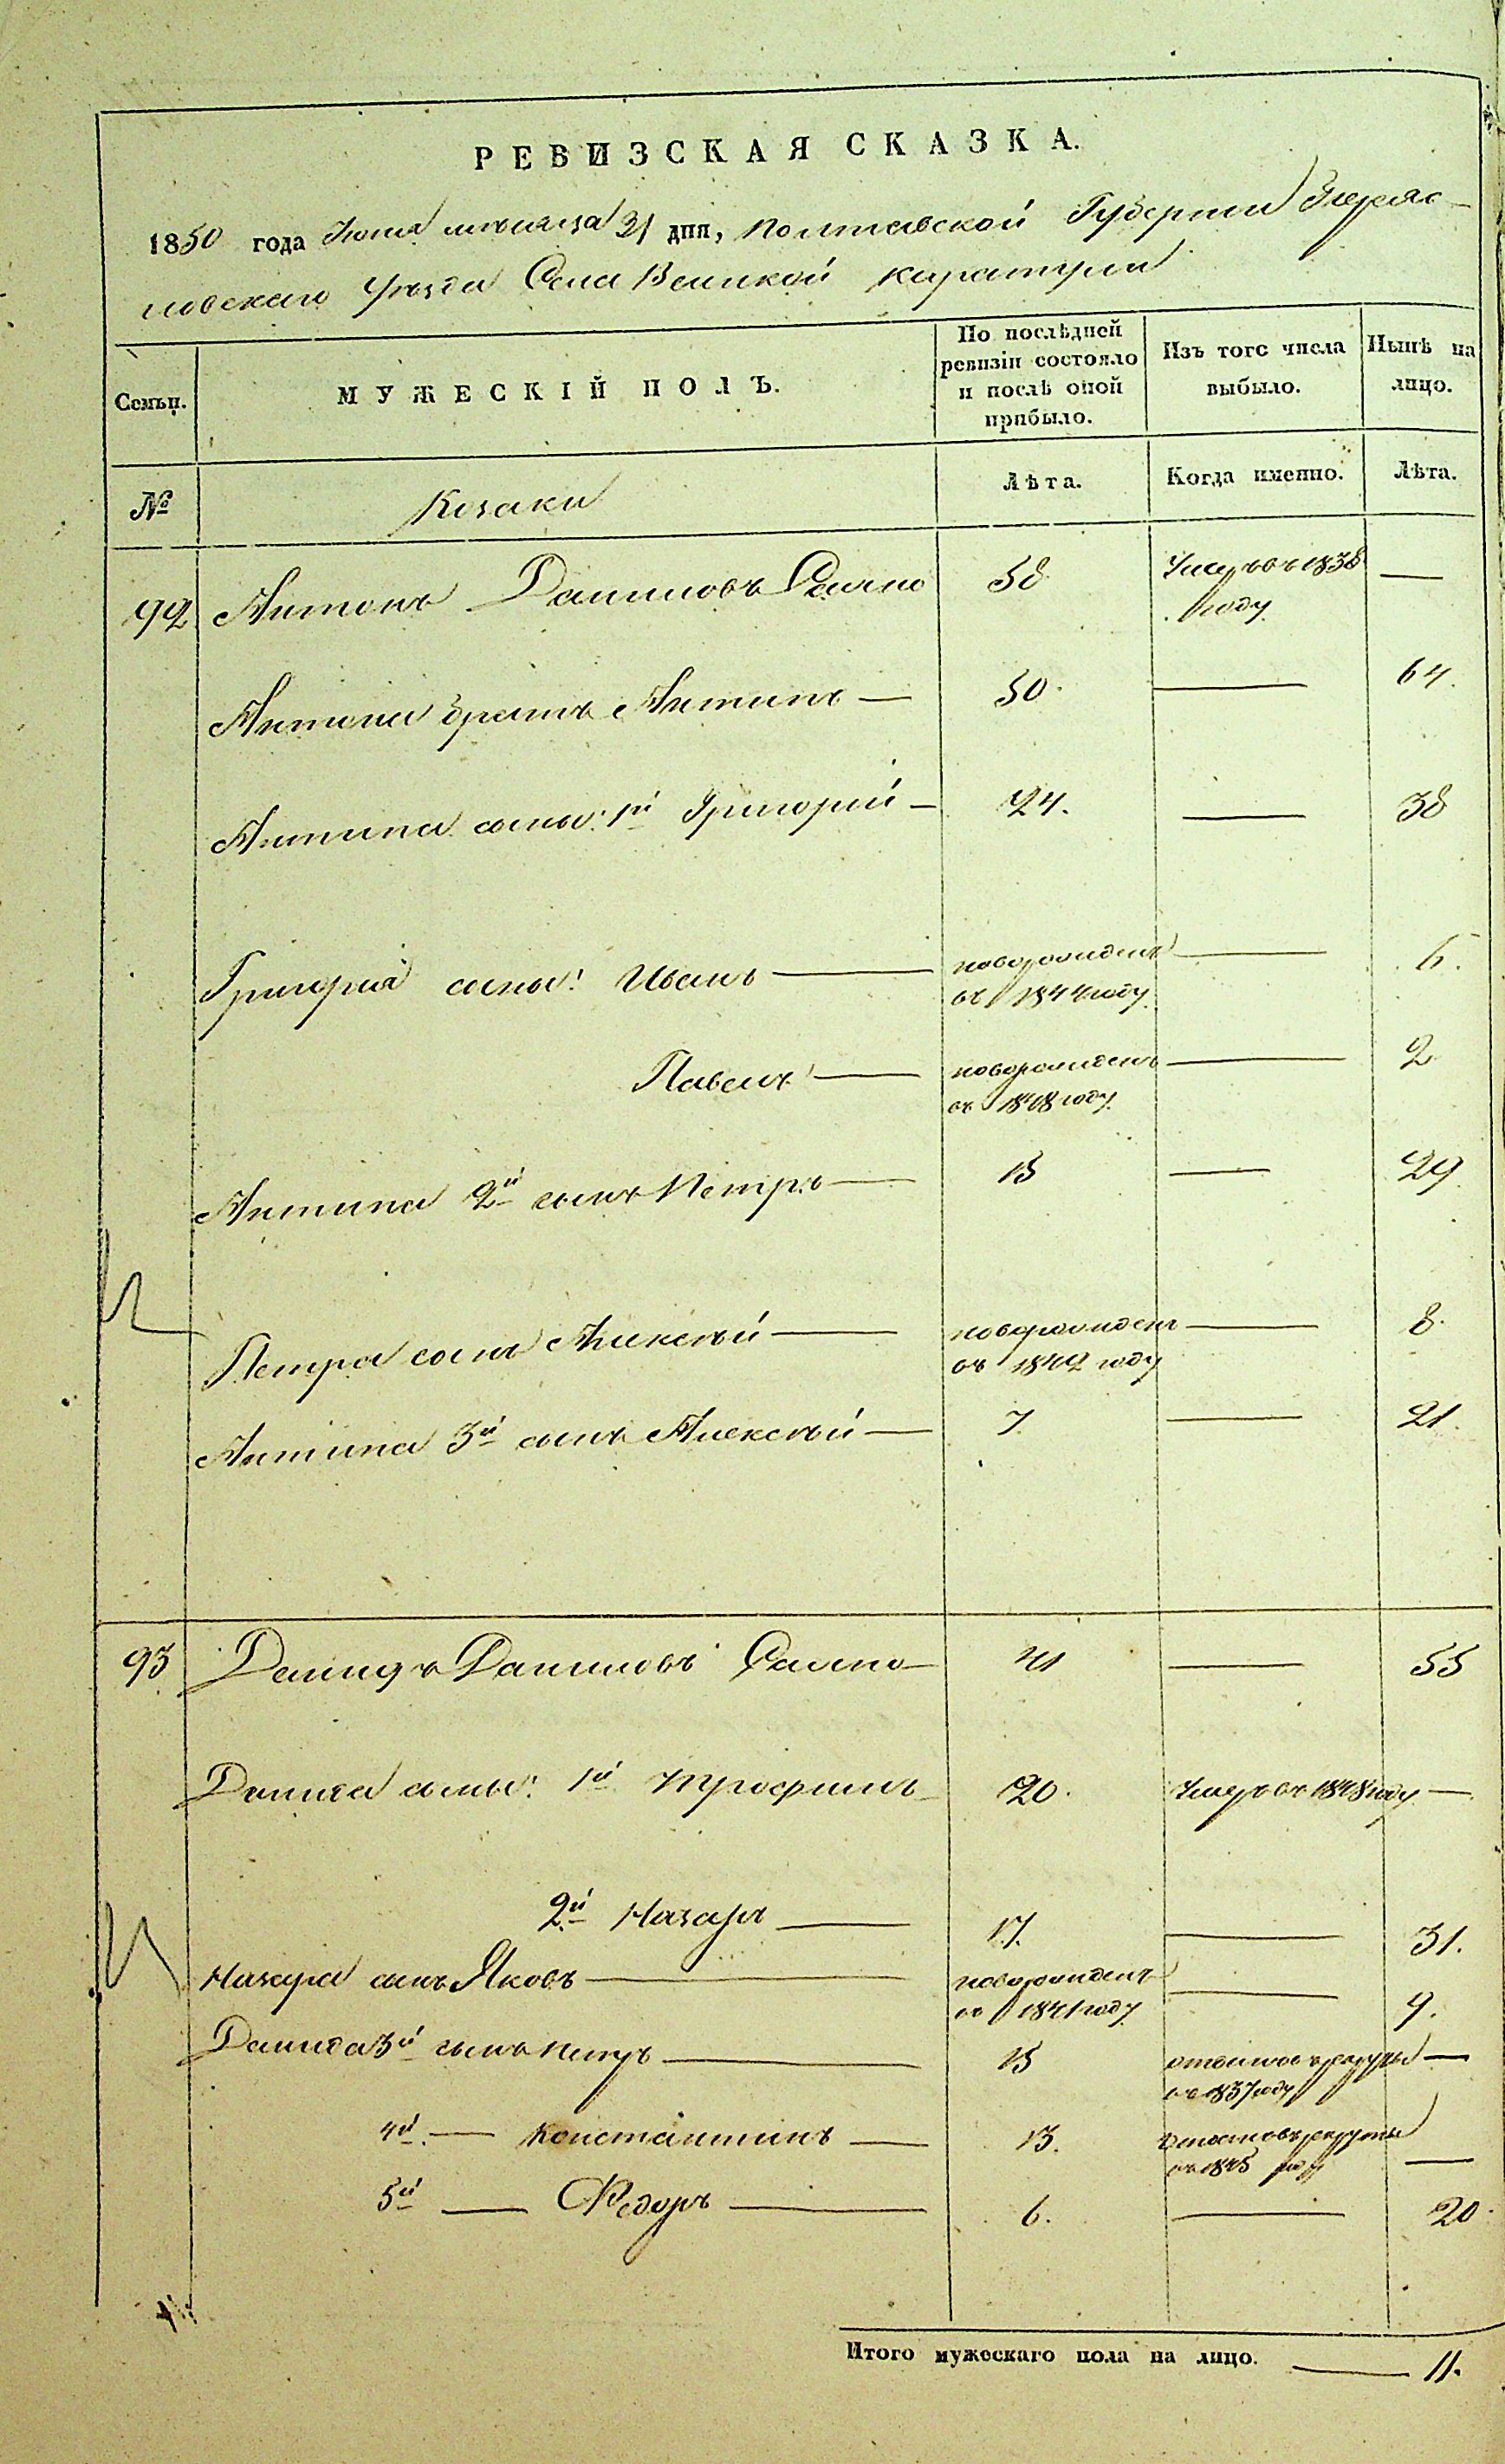 РЕВИЗСКАЯ СКАЗКА.
1850 года Іюня мѣсяца 21 дня, Полтавской Губерніи Переяс-
ловскаго Уѣзда Села Великой Каратули
Семьи.
МУЖЕСКІЙ ПОЛЪ.
По послѣдней
ревизіи состояло
и послѣ оной
прибыло.
Изъ того числа
выбыло.
Нынѣ на
лицо.
№
Козаки
Лѣта.
Когда именно.
Лѣта.
92 Антонъ Даниловъ 58 Умеръ въ 1838 —
году
Антона братъ Антипъ — 50. — 64.
Антипа сыны: 1й Григорій — 24. — 38
Григорія сыны: Иванъ — новорожденъ — 6.
въ 1844 году.
Павелъ — новорожденъ — 2
въ 1848 году.
Антипа 2й сынъ Петръ — 15 — 29
Петра сынъ Алексѣй — новорожденъ — 8.
въ 1842 году
Антипа 3й сынъ Алексѣй — 7. — 21.
93 Демидъ Даниловъ 41 — 55
Демида сыны: 1й Трофимъ 20. Умеръ въ 1848 году —
2й Назаръ — 17. — 31.
Назара сынъ Яковъ — новорожденъ — 9.
въ 1841 году
Демида 3й сынъ Петръ — 15 отданъ въ рекруты —
въ 1837 году
4й — Константинъ — 13. отданъ въ рекруты —
въ 1845 году
5й — Федоръ — 6. — 20
Итого мужескаго пола на лицо. — 11.